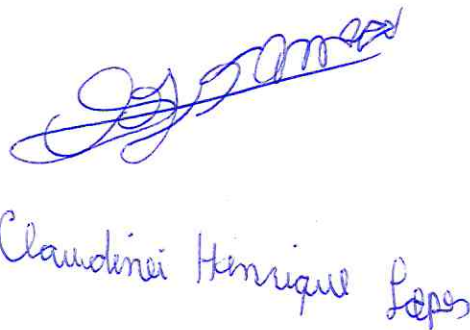 Claudinei Henrique Lopes